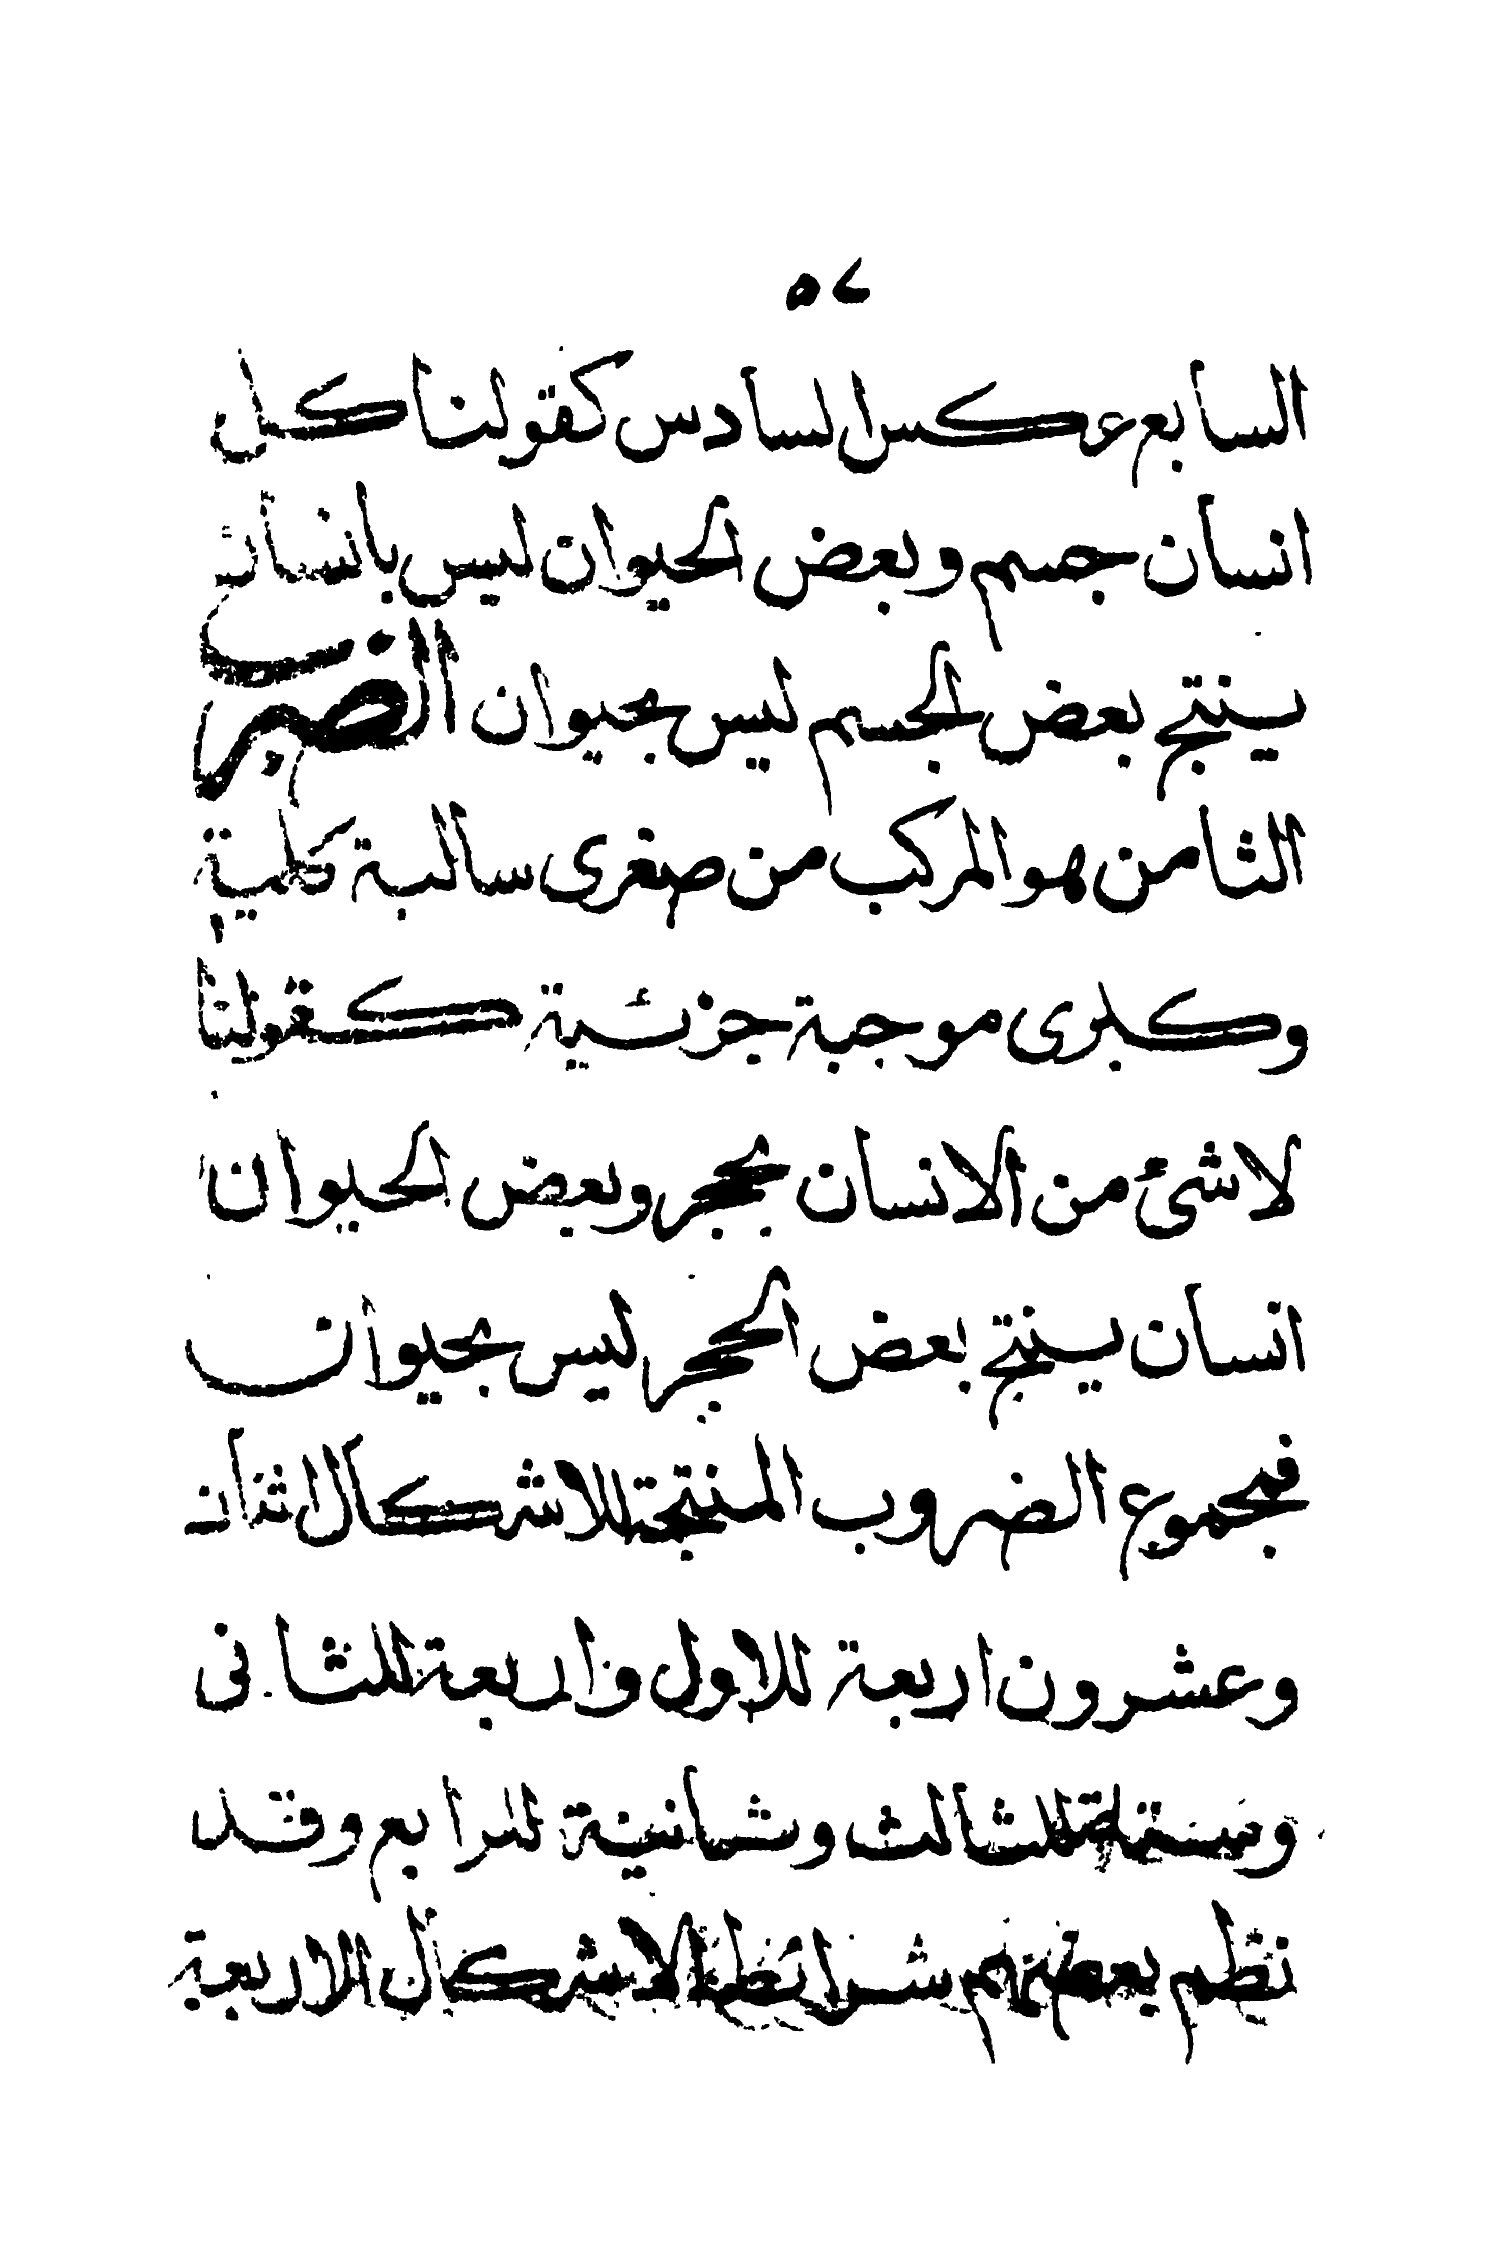 ٤٥
السابع عكس السادس كقولنا كل
انسان جسم وبعض الحيوان ليس بانسان
ينتج بعض الجسم ليس بحيوان الضرب
الثامن هو المركب من صغرى سالبة كلية
وكبرى موجبة جزئية كقولنا
لاشئ من الانسان بحجر وبعض الحيوان
انسان ينتج بعض الحجر ليس بحيوان
فمجموع الضروب المنتجة للاشكال اثنان
وعشرون اربعة للاول واربعة للثانى
وستة للثالث وثمانية للرابع وقد
نظم بعضهم شرائط الاشكال الاربعة